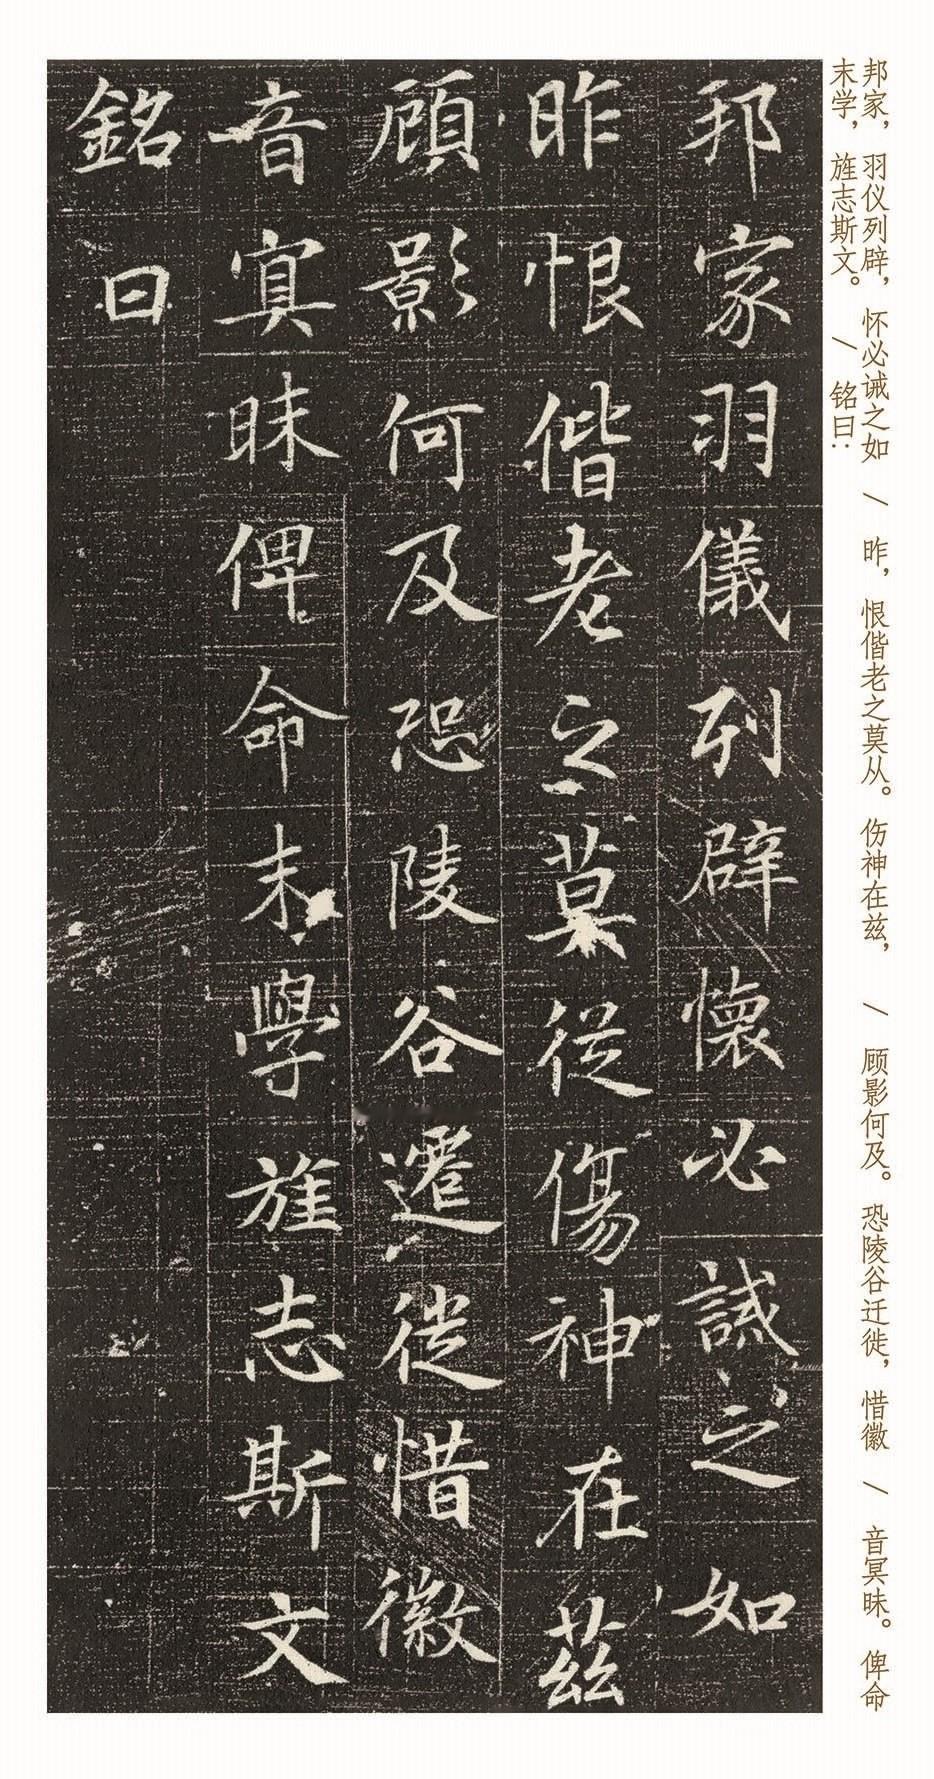 邦家，羽仪列辟，怀必诫之如 / 昨，恨偕老之莫从。伤神在兹， / 顾影何及。恐陵谷迁徙，惜徽 / 音冥昧。俾命
末学，旌志斯文。 / 铭曰：
邦家羽儀列辟懷必誡之如
昨恨偕老之莫從傷神在茲
顧影何及恐陵谷遷徙惜徽
音寘昧俾命末學旌志斯文
銘曰